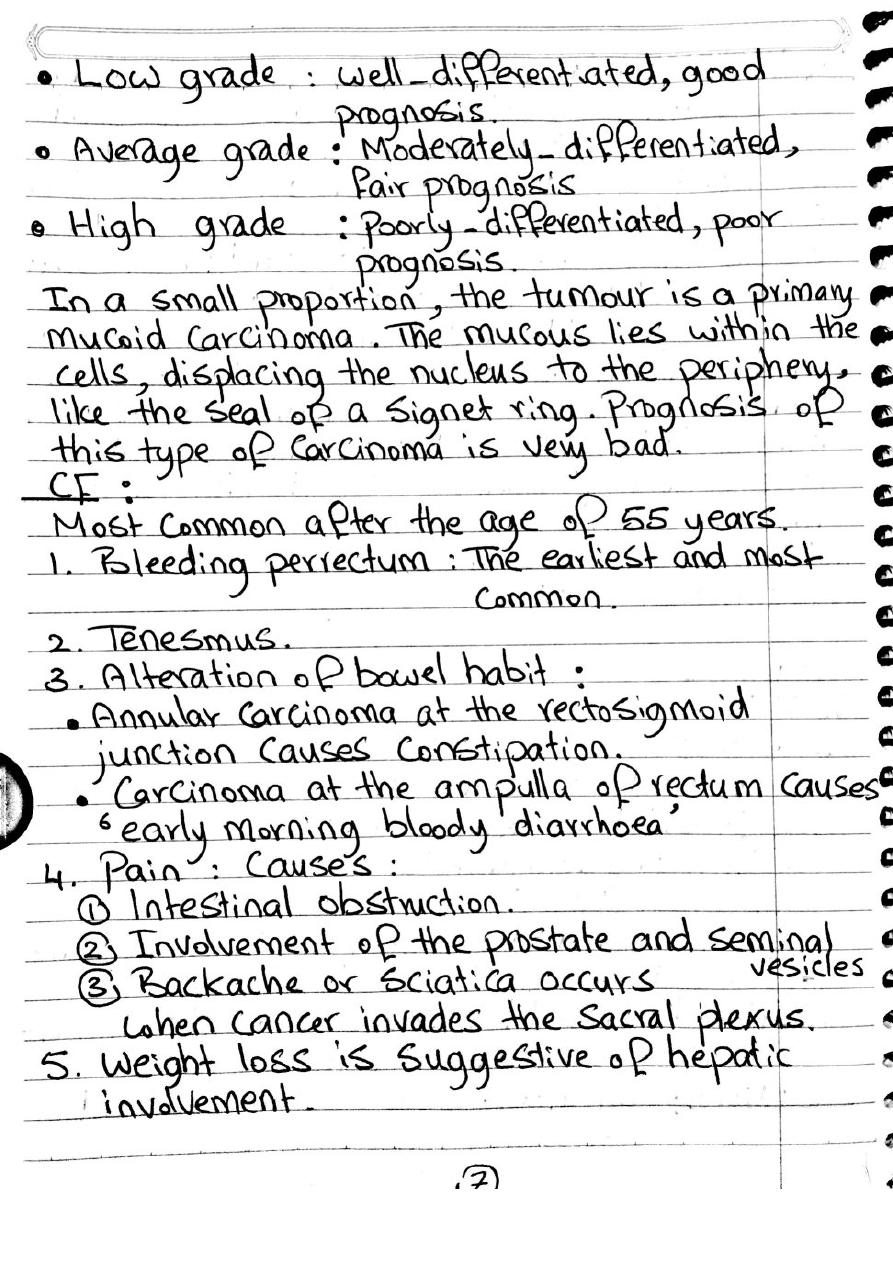 • Low grade : well-differentiated, good
prognosis.
• Average grade : Moderately-differentiated,
fair prognosis
• High grade : Poorly-differentiated, poor
prognosis.
In a small proportion, the tumour is a primary
mucoid carcinoma. The mucous lies within the
cells, displacing the nucleus to the periphery,
like the seal of a signet ring. Prognosis of
this type of carcinoma is very bad.
CF :
Most common after the age of 55 years.
1. Bleeding perrectum : The earliest and most
common.
2. Tenesmus.
3. Alteration of bowel habit :
• Annular carcinoma at the rectosigmoid
junction causes constipation.
• Carcinoma at the ampulla of rectum causes
'early morning bloody diarrhoea'
4. Pain : Causes :
① Intestinal obstruction.
② Involvement of the prostate and seminal
vesicles
③ Backache or sciatica occurs
when cancer invades the sacral plexus.
5. Weight loss is suggestive of hepatic
involvement.
7